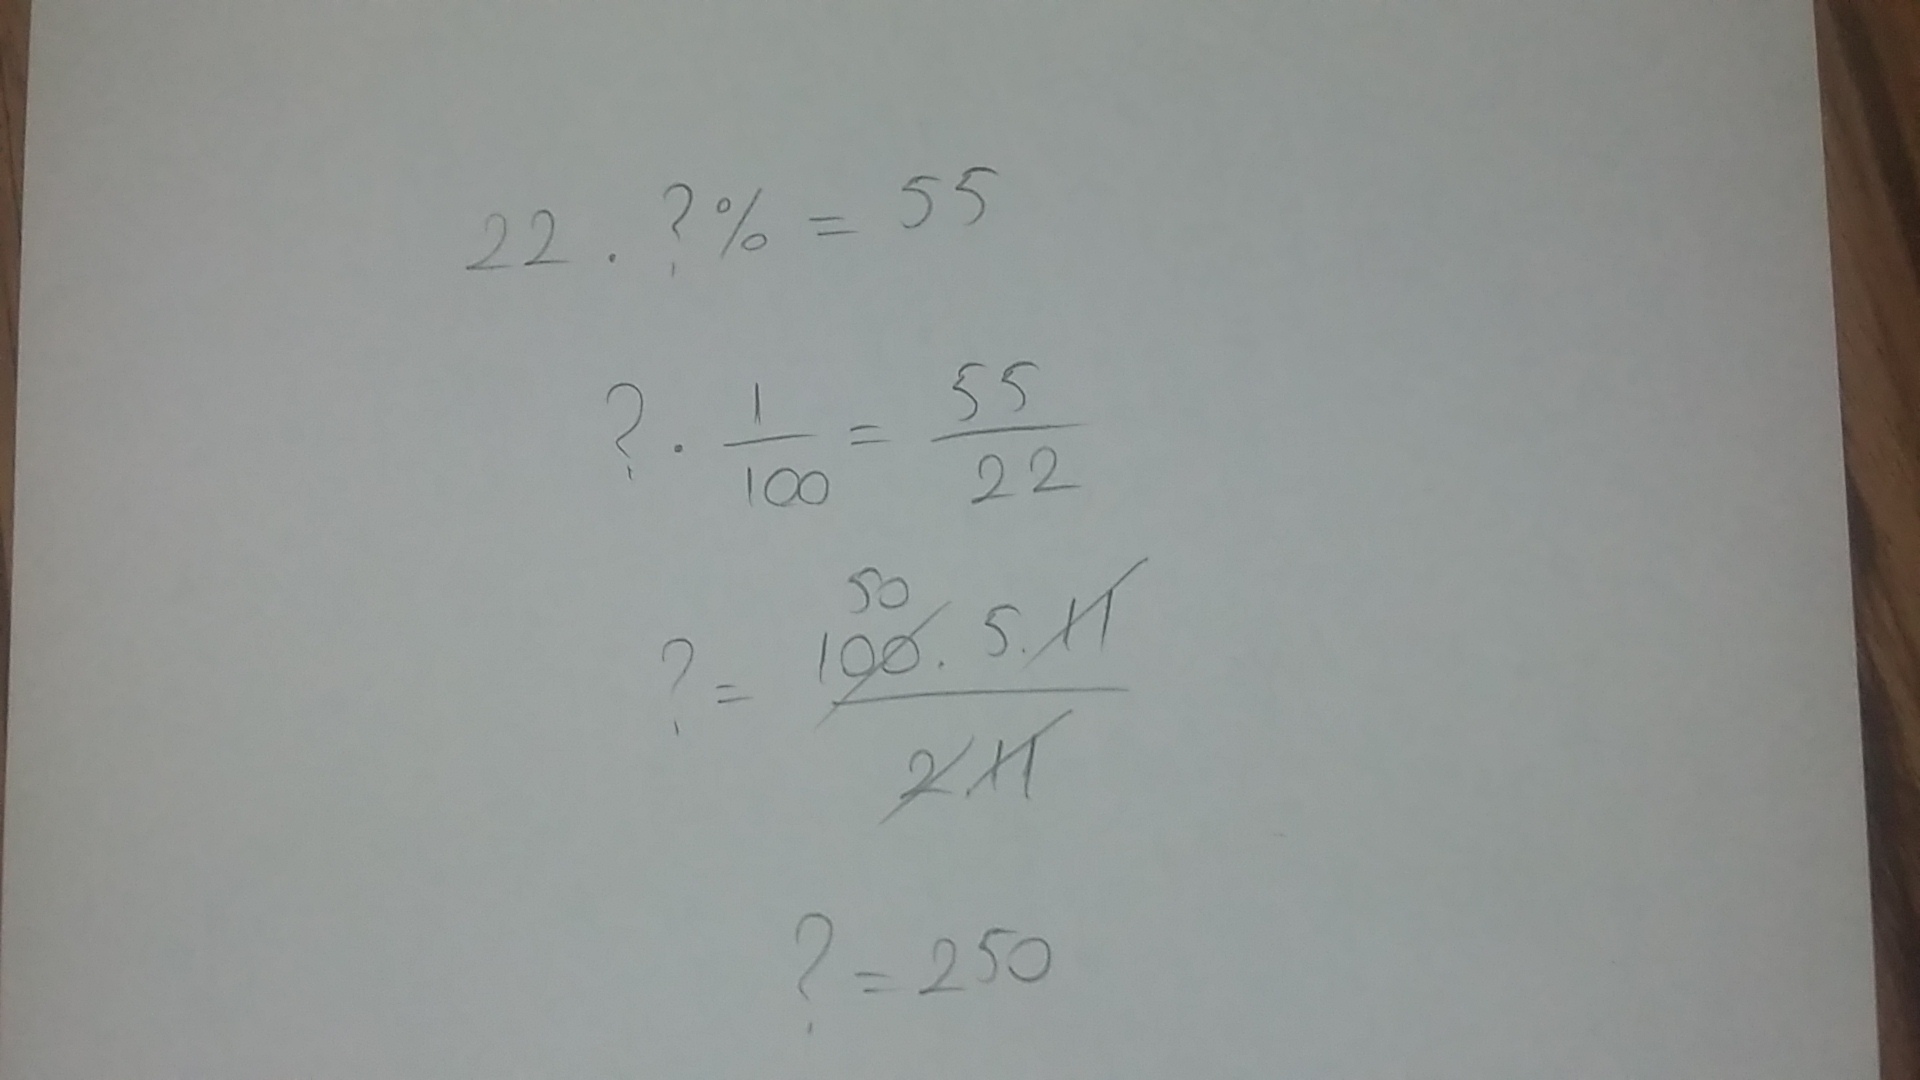 22 . ?% = 55
? . 1/100 = 55/22
50
? = 100 . 5 . 11 / 2 . 11
? = 250